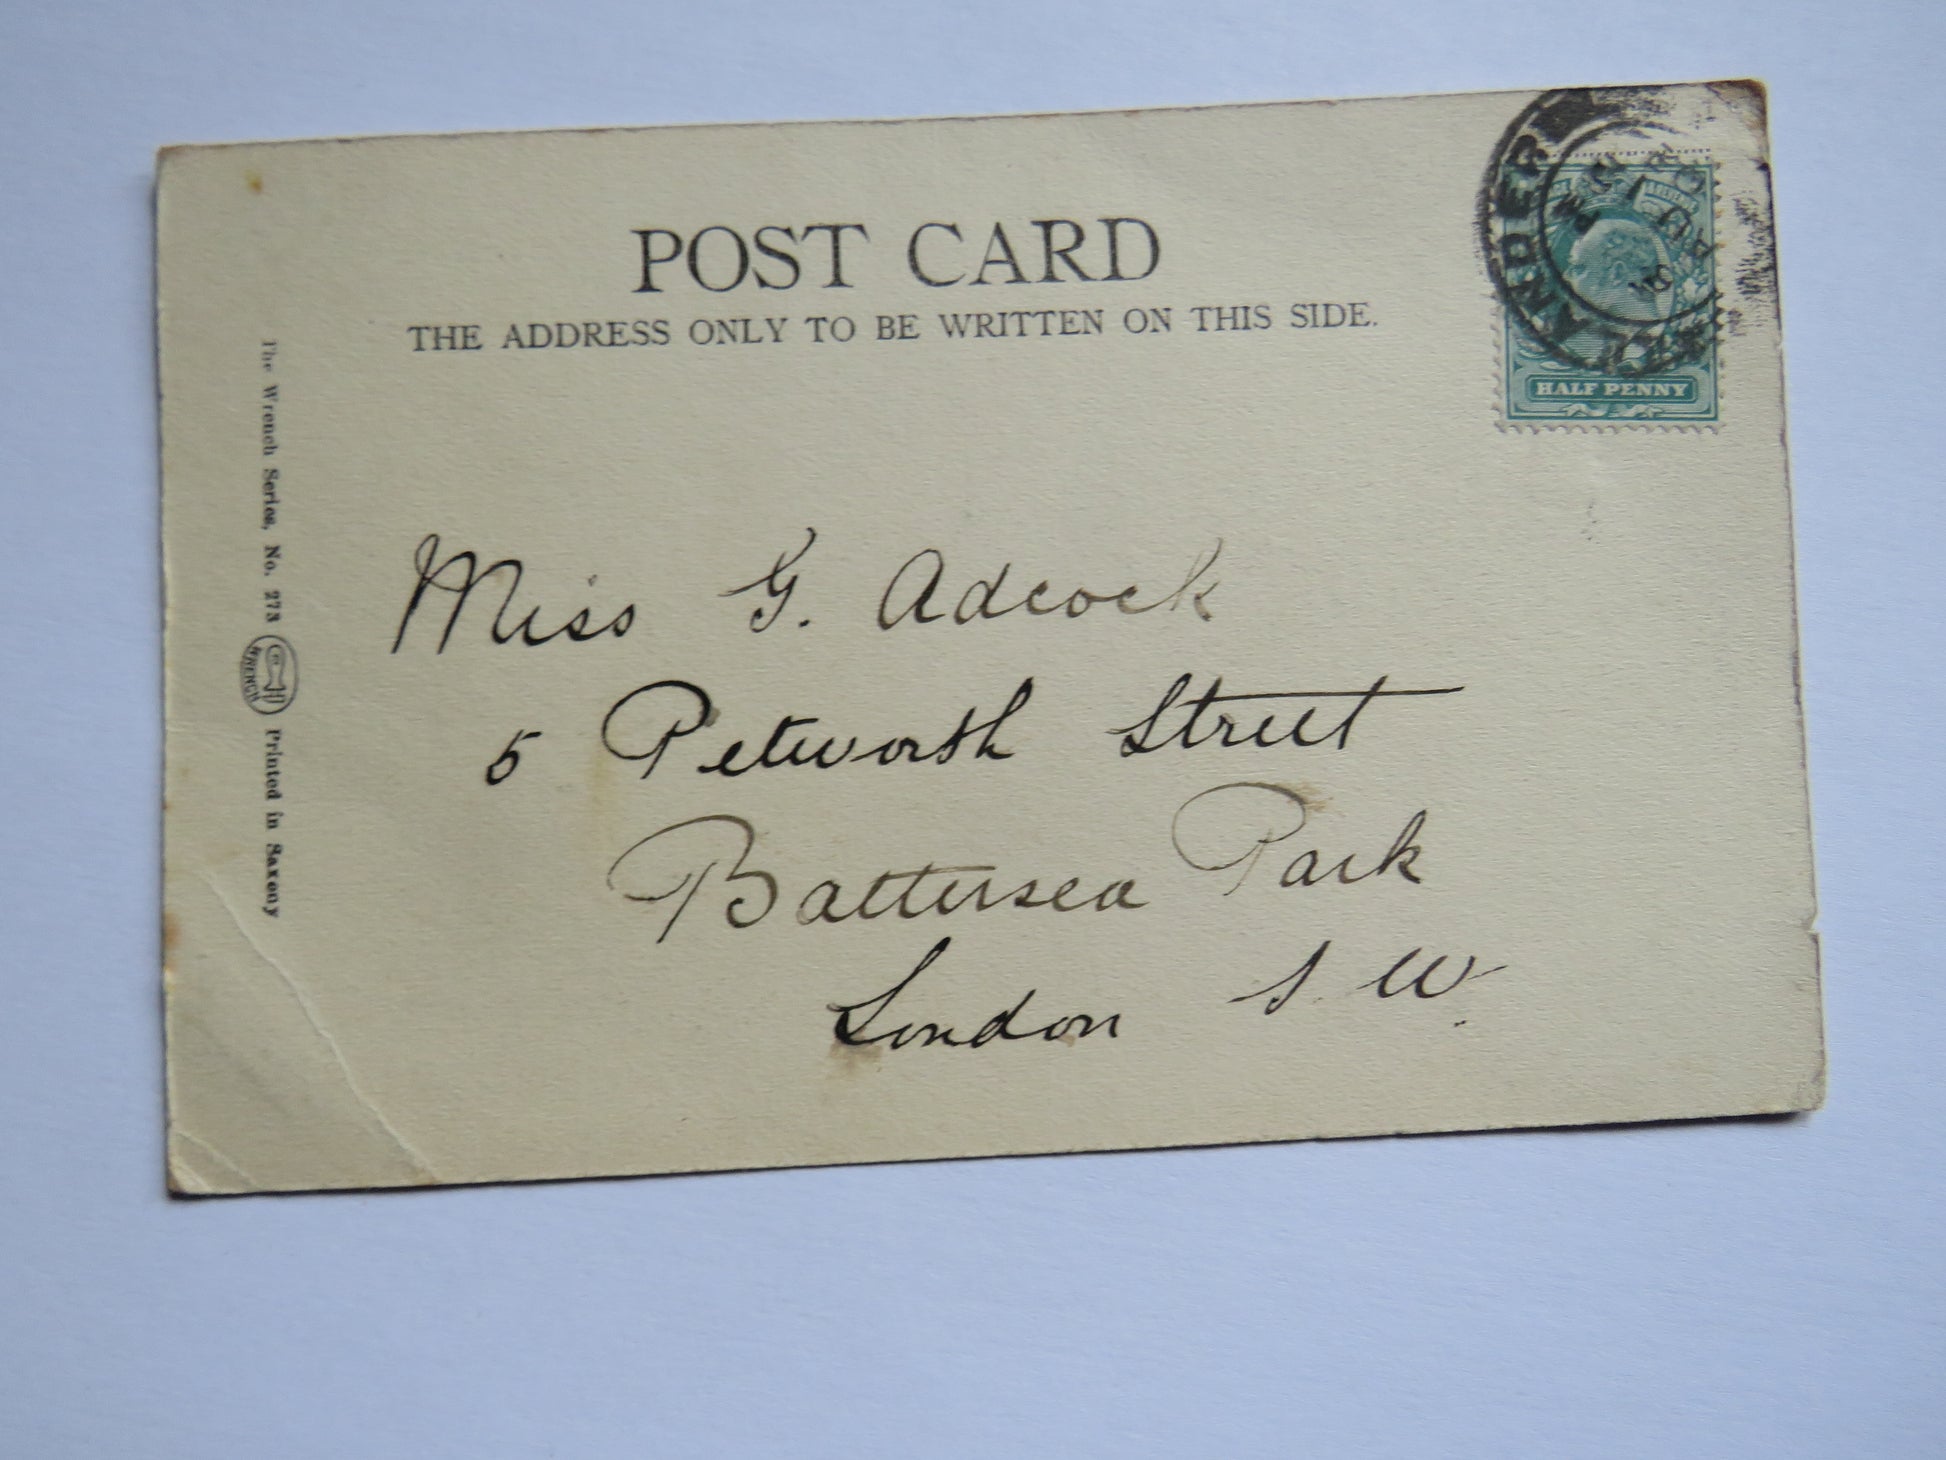 POST CARD
THE ADDRESS ONLY TO BE WRITTEN ON THIS SIDE.
HALF PENNY
PM
AU
Miss G. Adcock
5 Petworth Street
Battersea Park
London S. W.
The Wrench Series, No. 273 WRENCH Printed in Saxony